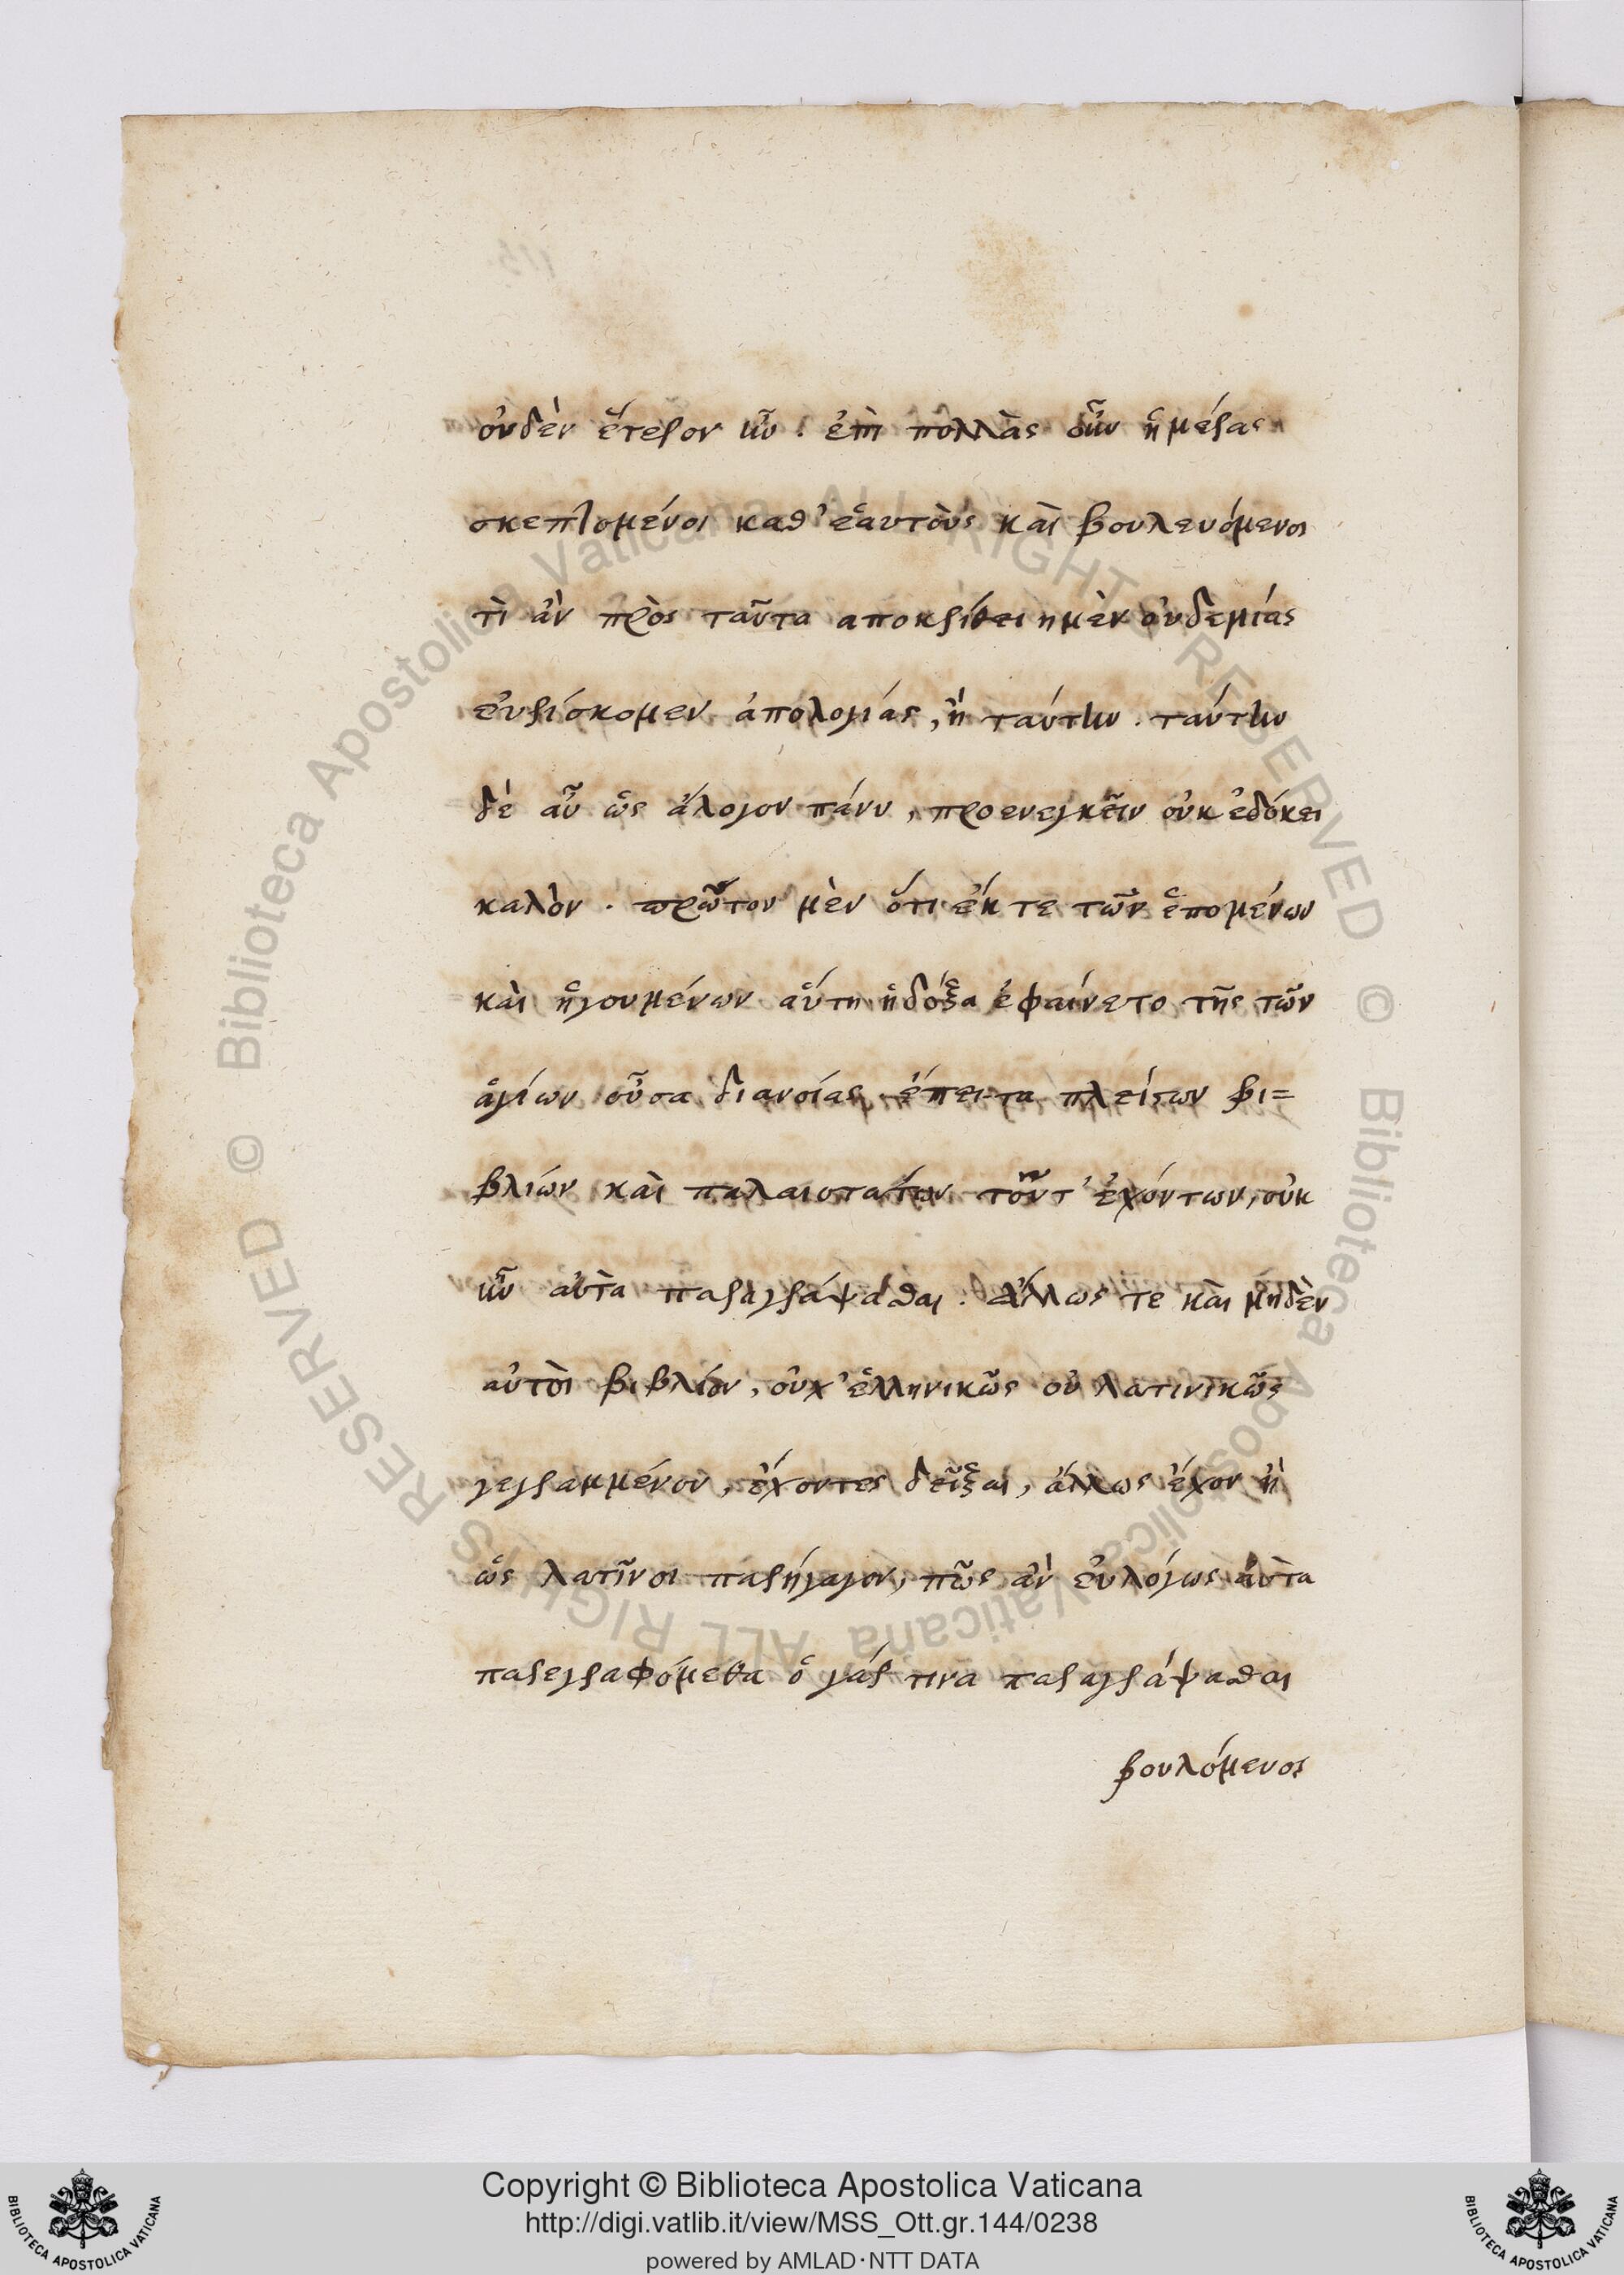 οὐδὲν ἕτερον ἦν. ἐπὶ πολλὰς οὖν ἡμέρας
σκεπτομένοι καθ' ἑαυτοὺς καὶ βουλευόμενοι
τὶ ἂν πρὸς ταῦτα
εὑρίσκομεν ἀπολογίας, ἢ ταύτην. ταύτην
δέ αὖ ὡς ἄλογον πάνυ, προενεγκεῖν οὐκ ἐδόκει
καλὸν. πρῶτον μὲν ὅτι ἔκ τε τῶν ἑπομένων
καὶ ἡγουμένων αὕτη ἡ δόξα ἐφαίνετο τῆς τῶν
ἁγίων οὖσα διανοίας, ἔπειτα πλείστων βι=
βλίων καὶ παλαιοτάτων τοῦτ' ἐχόντων, οὐκ
ἦν αὐτὰ παραγράψασθαι. ἄλλως τε καὶ μηδὲν
αὐτοὶ βιβλίον, οὐχ' ἑλληνικῶς οὐ λατινικῶς
γεγραμμένον, ἔχοντες δεῖξαι, ἄλλως ἔχον ἢ
ὡς λατῖνοι παρήγαγον, πῶς ἂν εὐλόγως αὐτὰ
παρεγραφόμεθα ὁ γάρ τινα παραγράψασθαι
βουλόμενος
Copyright © Biblioteca Apostolica Vaticana
http://digi.vatlib.it/view/MSS_Ott.gr.144/0238
powered by AMLAD·NTT DATA